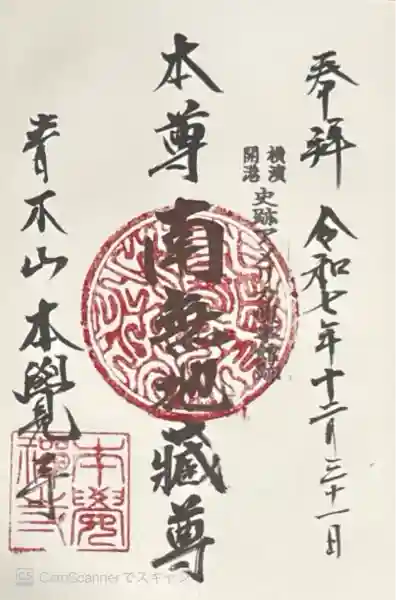 奉拜 令和七年十二月三十一日
横濱
開港
史跡アメリカ領事館跡
本尊 南無地藏尊
青木山本覺寺
本覺
禅寺
CS CamScannerでスキャン